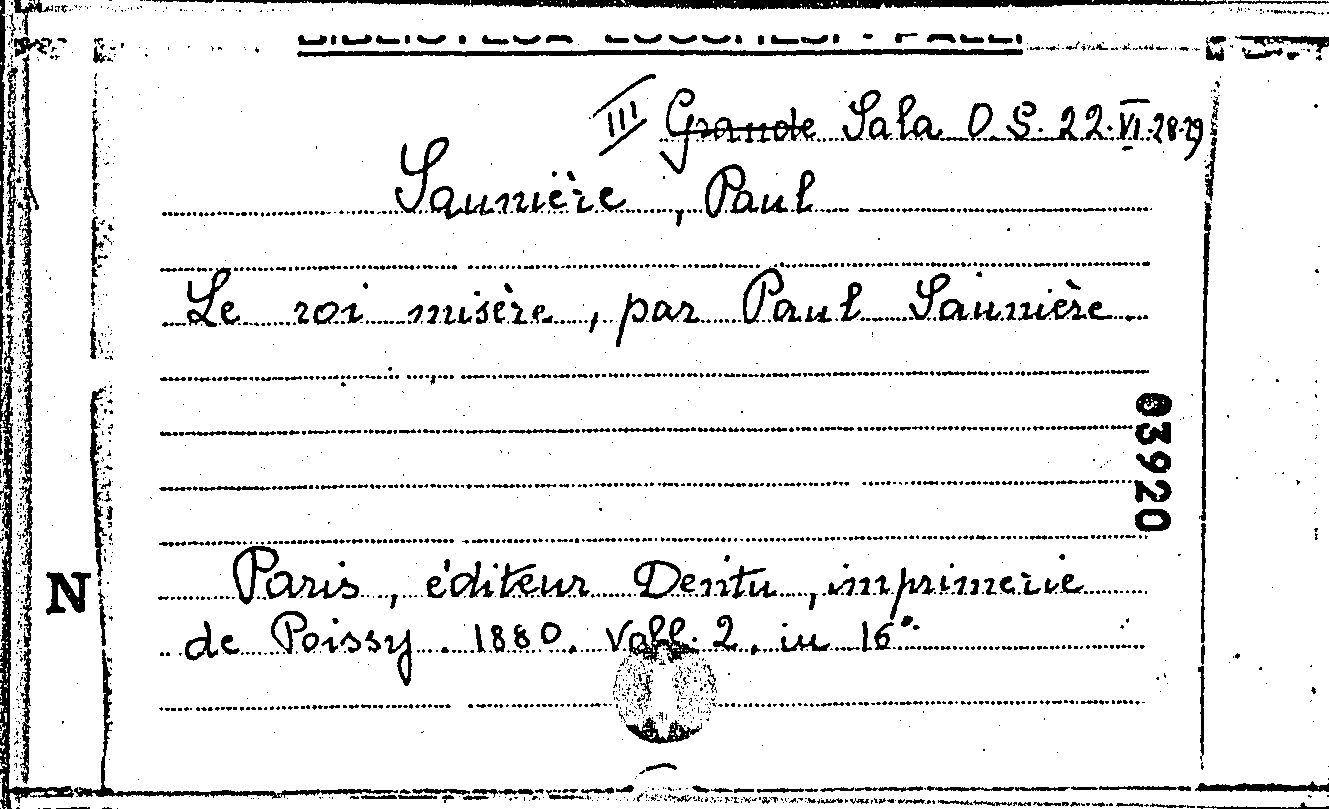 BIBLIOTECA LUCCHESI - PALLI
III Grande Sala O.S. 22.VI.28-29
Saunière, Paul
Le roi misère, par Paul Saunière.
03920
N
Paris, éditeur Dentu, imprimerie
de Poissy. 1880. Voll. 2. in 16°.